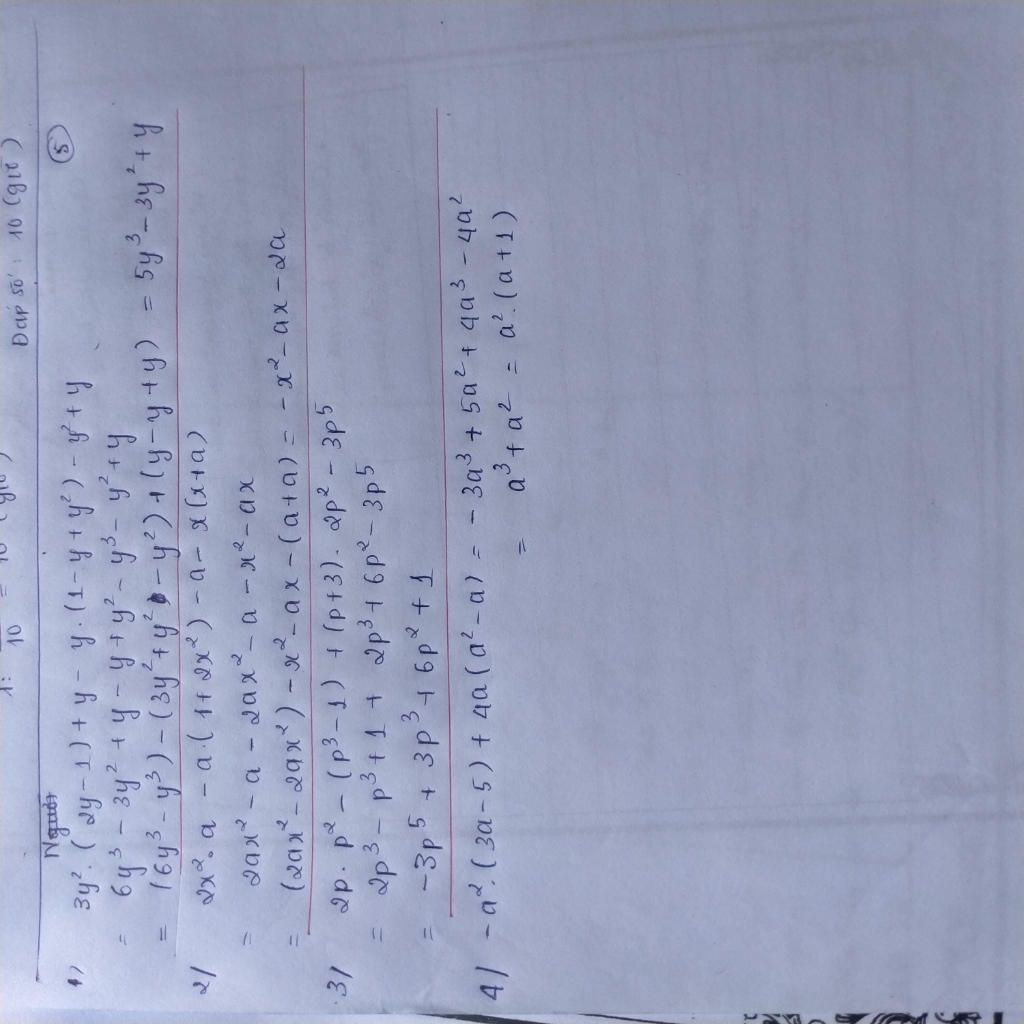 Đáp số : 10 (giờ)
⑤
1) 3y². (2y-1) + y - y. (1-y+y²) - y² + y
= 6y³ - 3y² + y - y + y² - y³ - y² + y
= (6y³ - y³) - (3y² + y² - y²) + (y - y + y) = 5y³ - 3y² + y
2) 2x². a - a. (1+2x²) - a - x(x+a)
= 2ax² - a - 2ax² - a - x² - ax
= (2ax² - 2ax²) - x² - ax - (a+a) = -x² - ax - 2a
3) 2p. p² - (p³ - 1) + (p+3). 2p² - 3p⁵
= 2p³ - p³ + 1 + 2p³ + 6p² - 3p⁵
= -3p⁵ + 3p³ + 6p² + 1
4) -a². (3a-5) + 4a(a² - a) = -3a³ + 5a² + 4a³ - 4a²
= a³ + a² = a². (a+1)